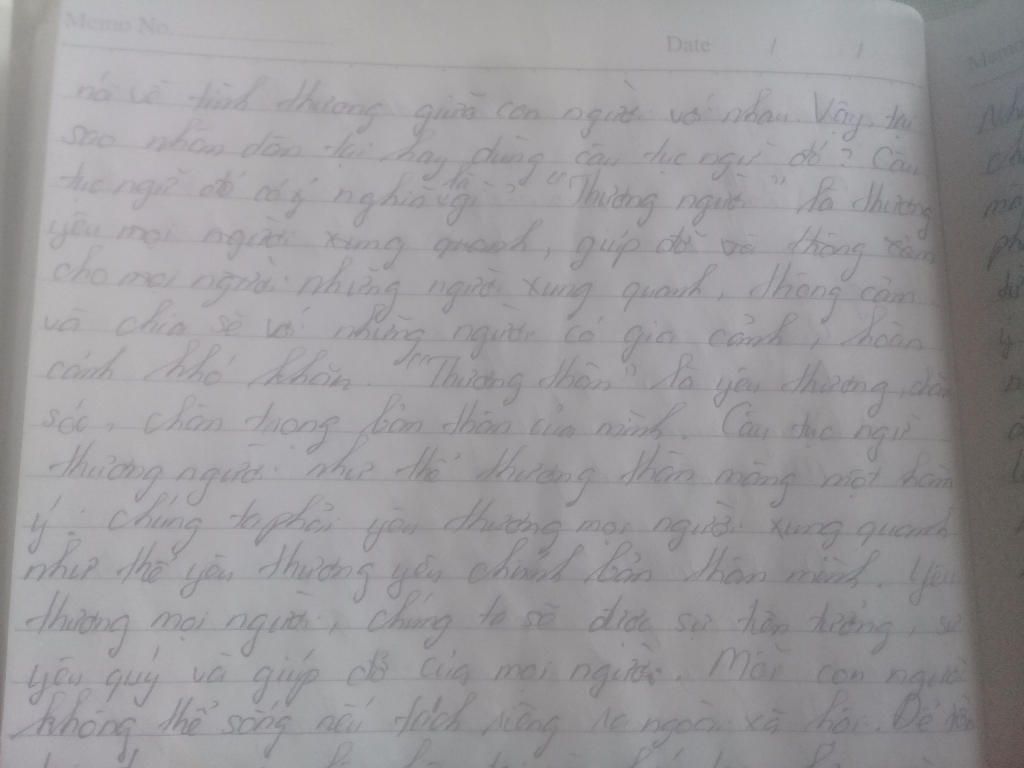 Memo No.
Date / /
nó về tình thương giữa con người với nhau. Vậy, tại
sao nhân dân lại hay dùng câu tục ngữ đó? Câu
tục ngữ đó có ý nghĩa là gì? "Thương người" là thương
yêu mọi người xung quanh, giúp đỡ và thông cảm
cho mọi người những người xung quanh, thông cảm
và chia sẽ với những người có gia cảnh, hoàn
cảnh khó khăn. "Thương thân" là yêu thương, chăm
sóc, chân trọng bản thân của mình. Câu tục ngữ
thương người như thể thương thân mang một hàm
ý: chúng ta phải yêu thương mọi người xung quanh
như thể yêu thương yêu chính bản thân mình. Yêu
thương mọi người, chúng ta sẽ được sự tin tưởng, sự
yêu quý và giúp đỡ của mọi người. Mỗi con người
không thể sống nếu tách riêng ra ngoài xã hội. Để tồn